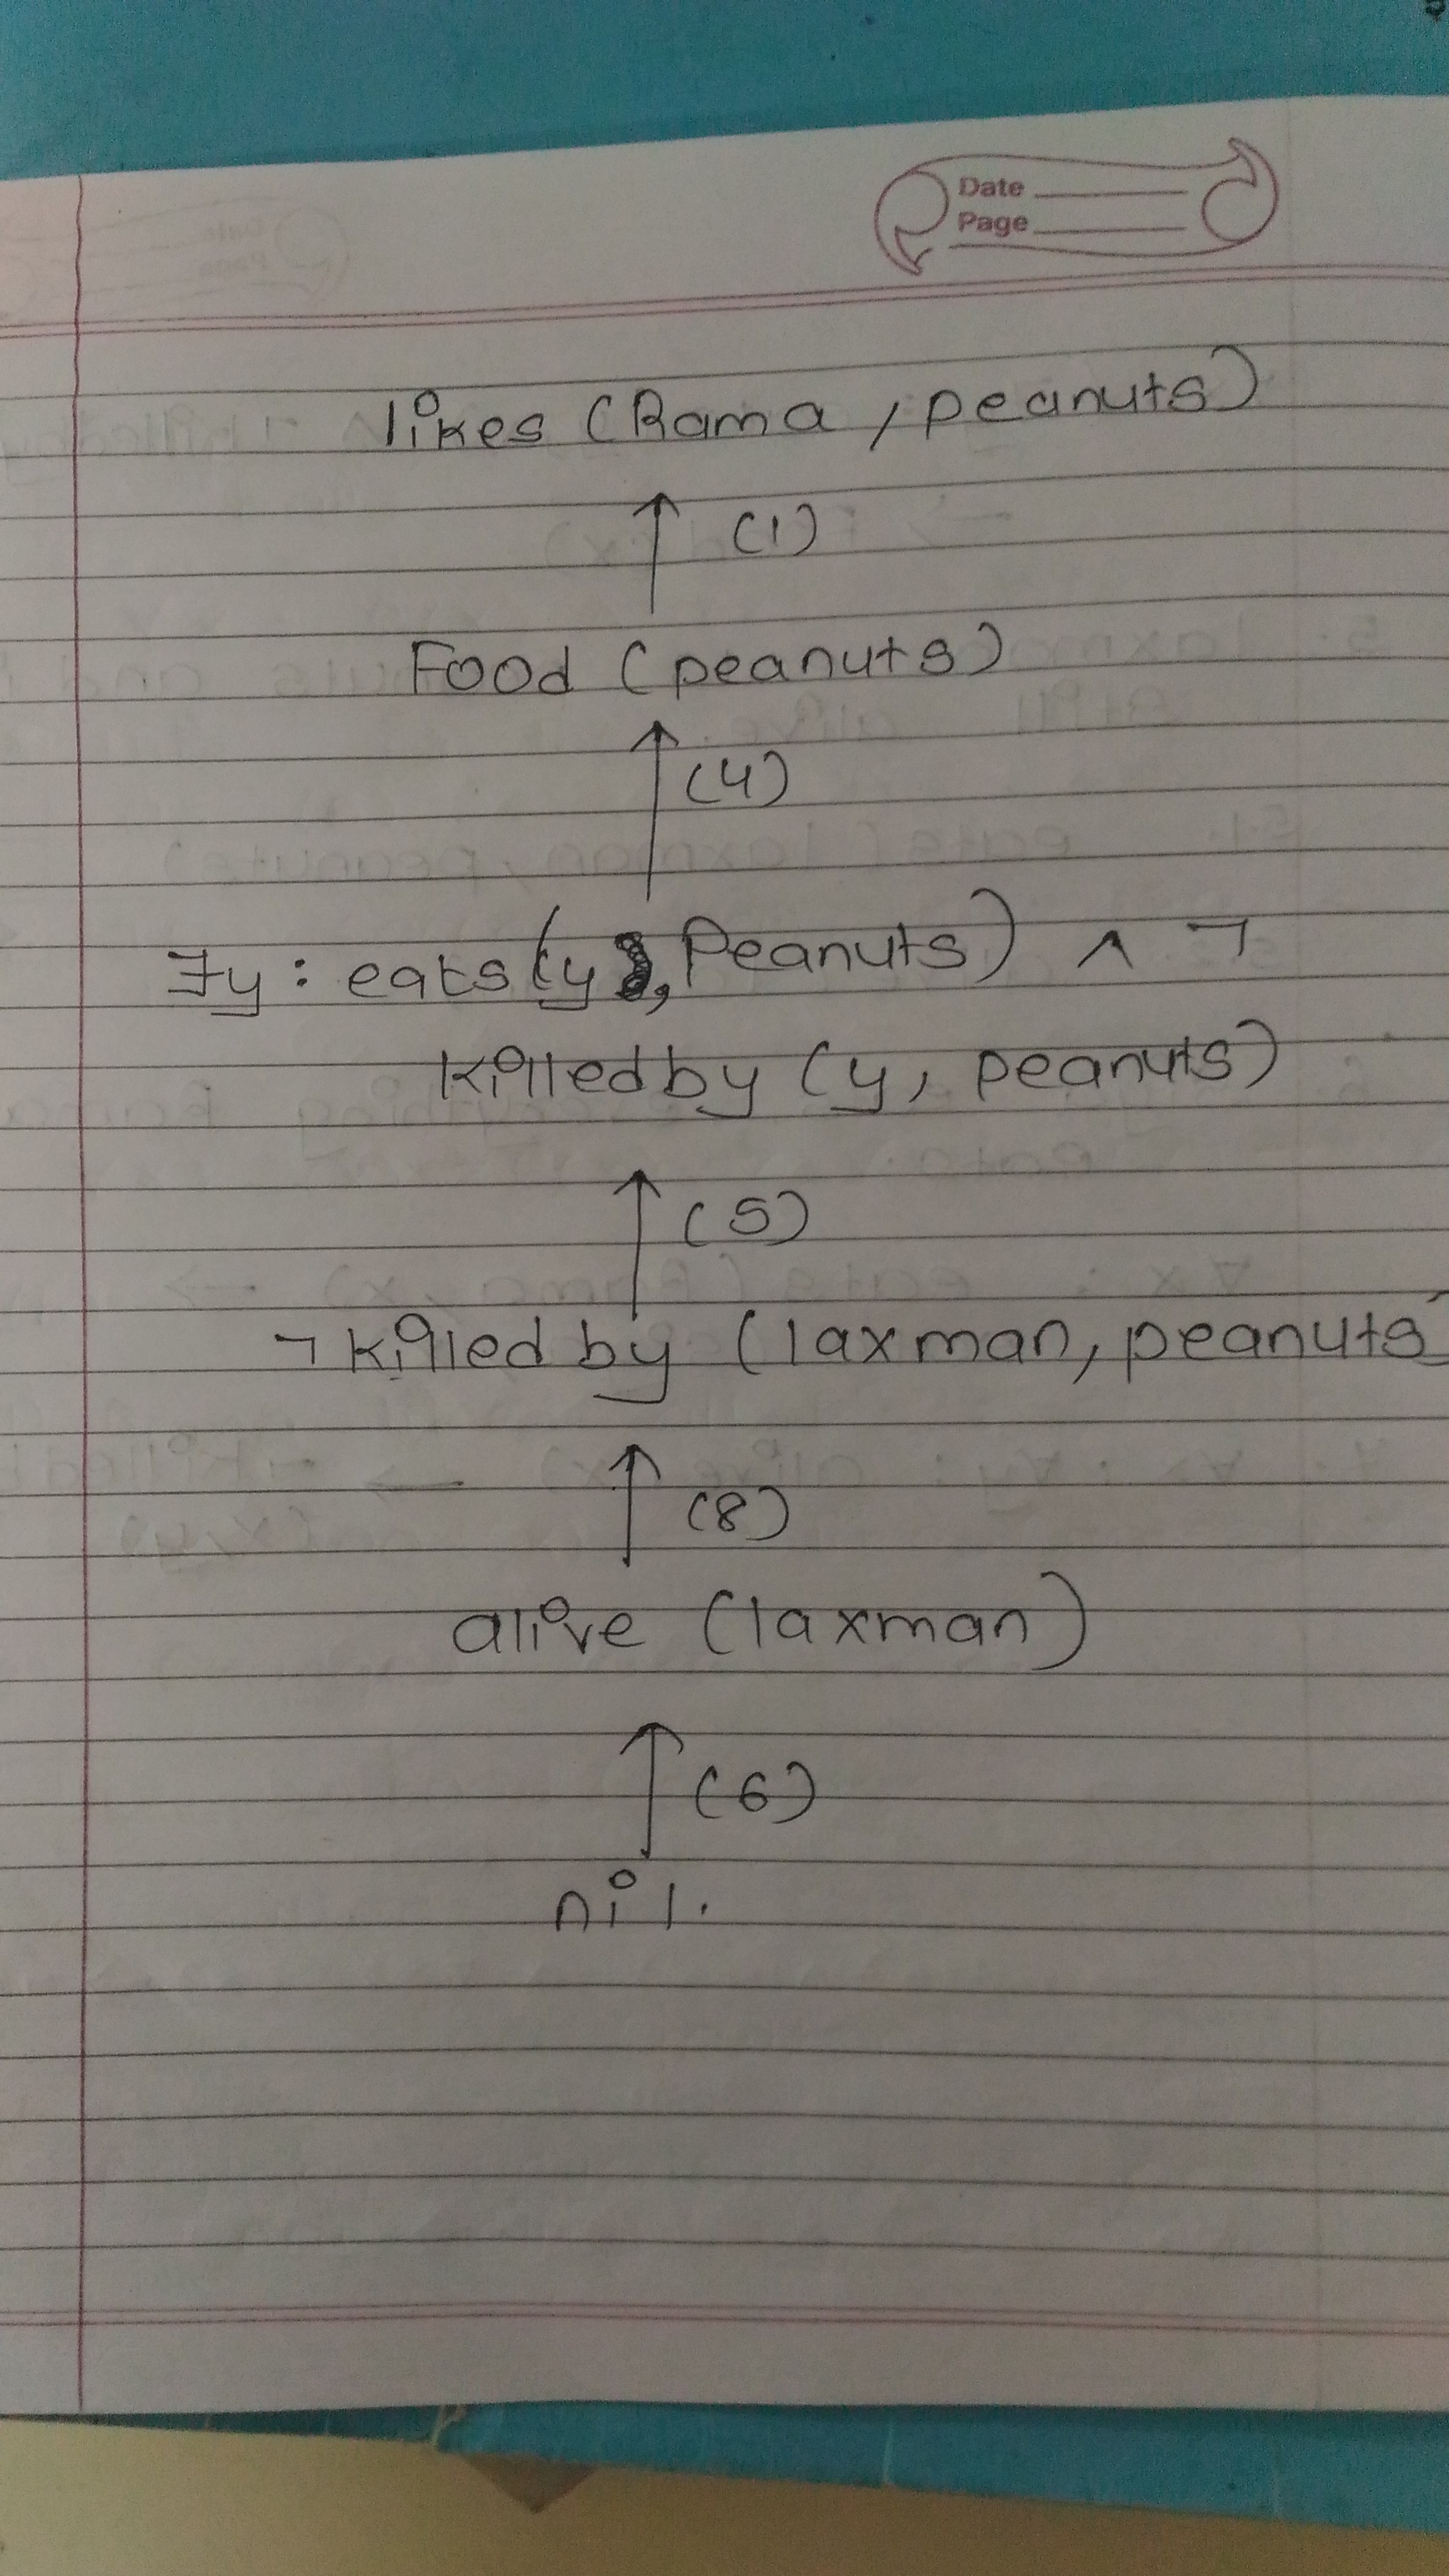 Date
Page
likes (Rama, peanuts)
↑ (1)
Food (peanuts)
↑ (4)
∃y: eats (y, Peanuts) ∧ ¬
killed by (y, peanuts)
↑ (5)
¬ killed by (laxman, peanuts)
↑ (8)
alive (laxman)
↑ (6)
nil.